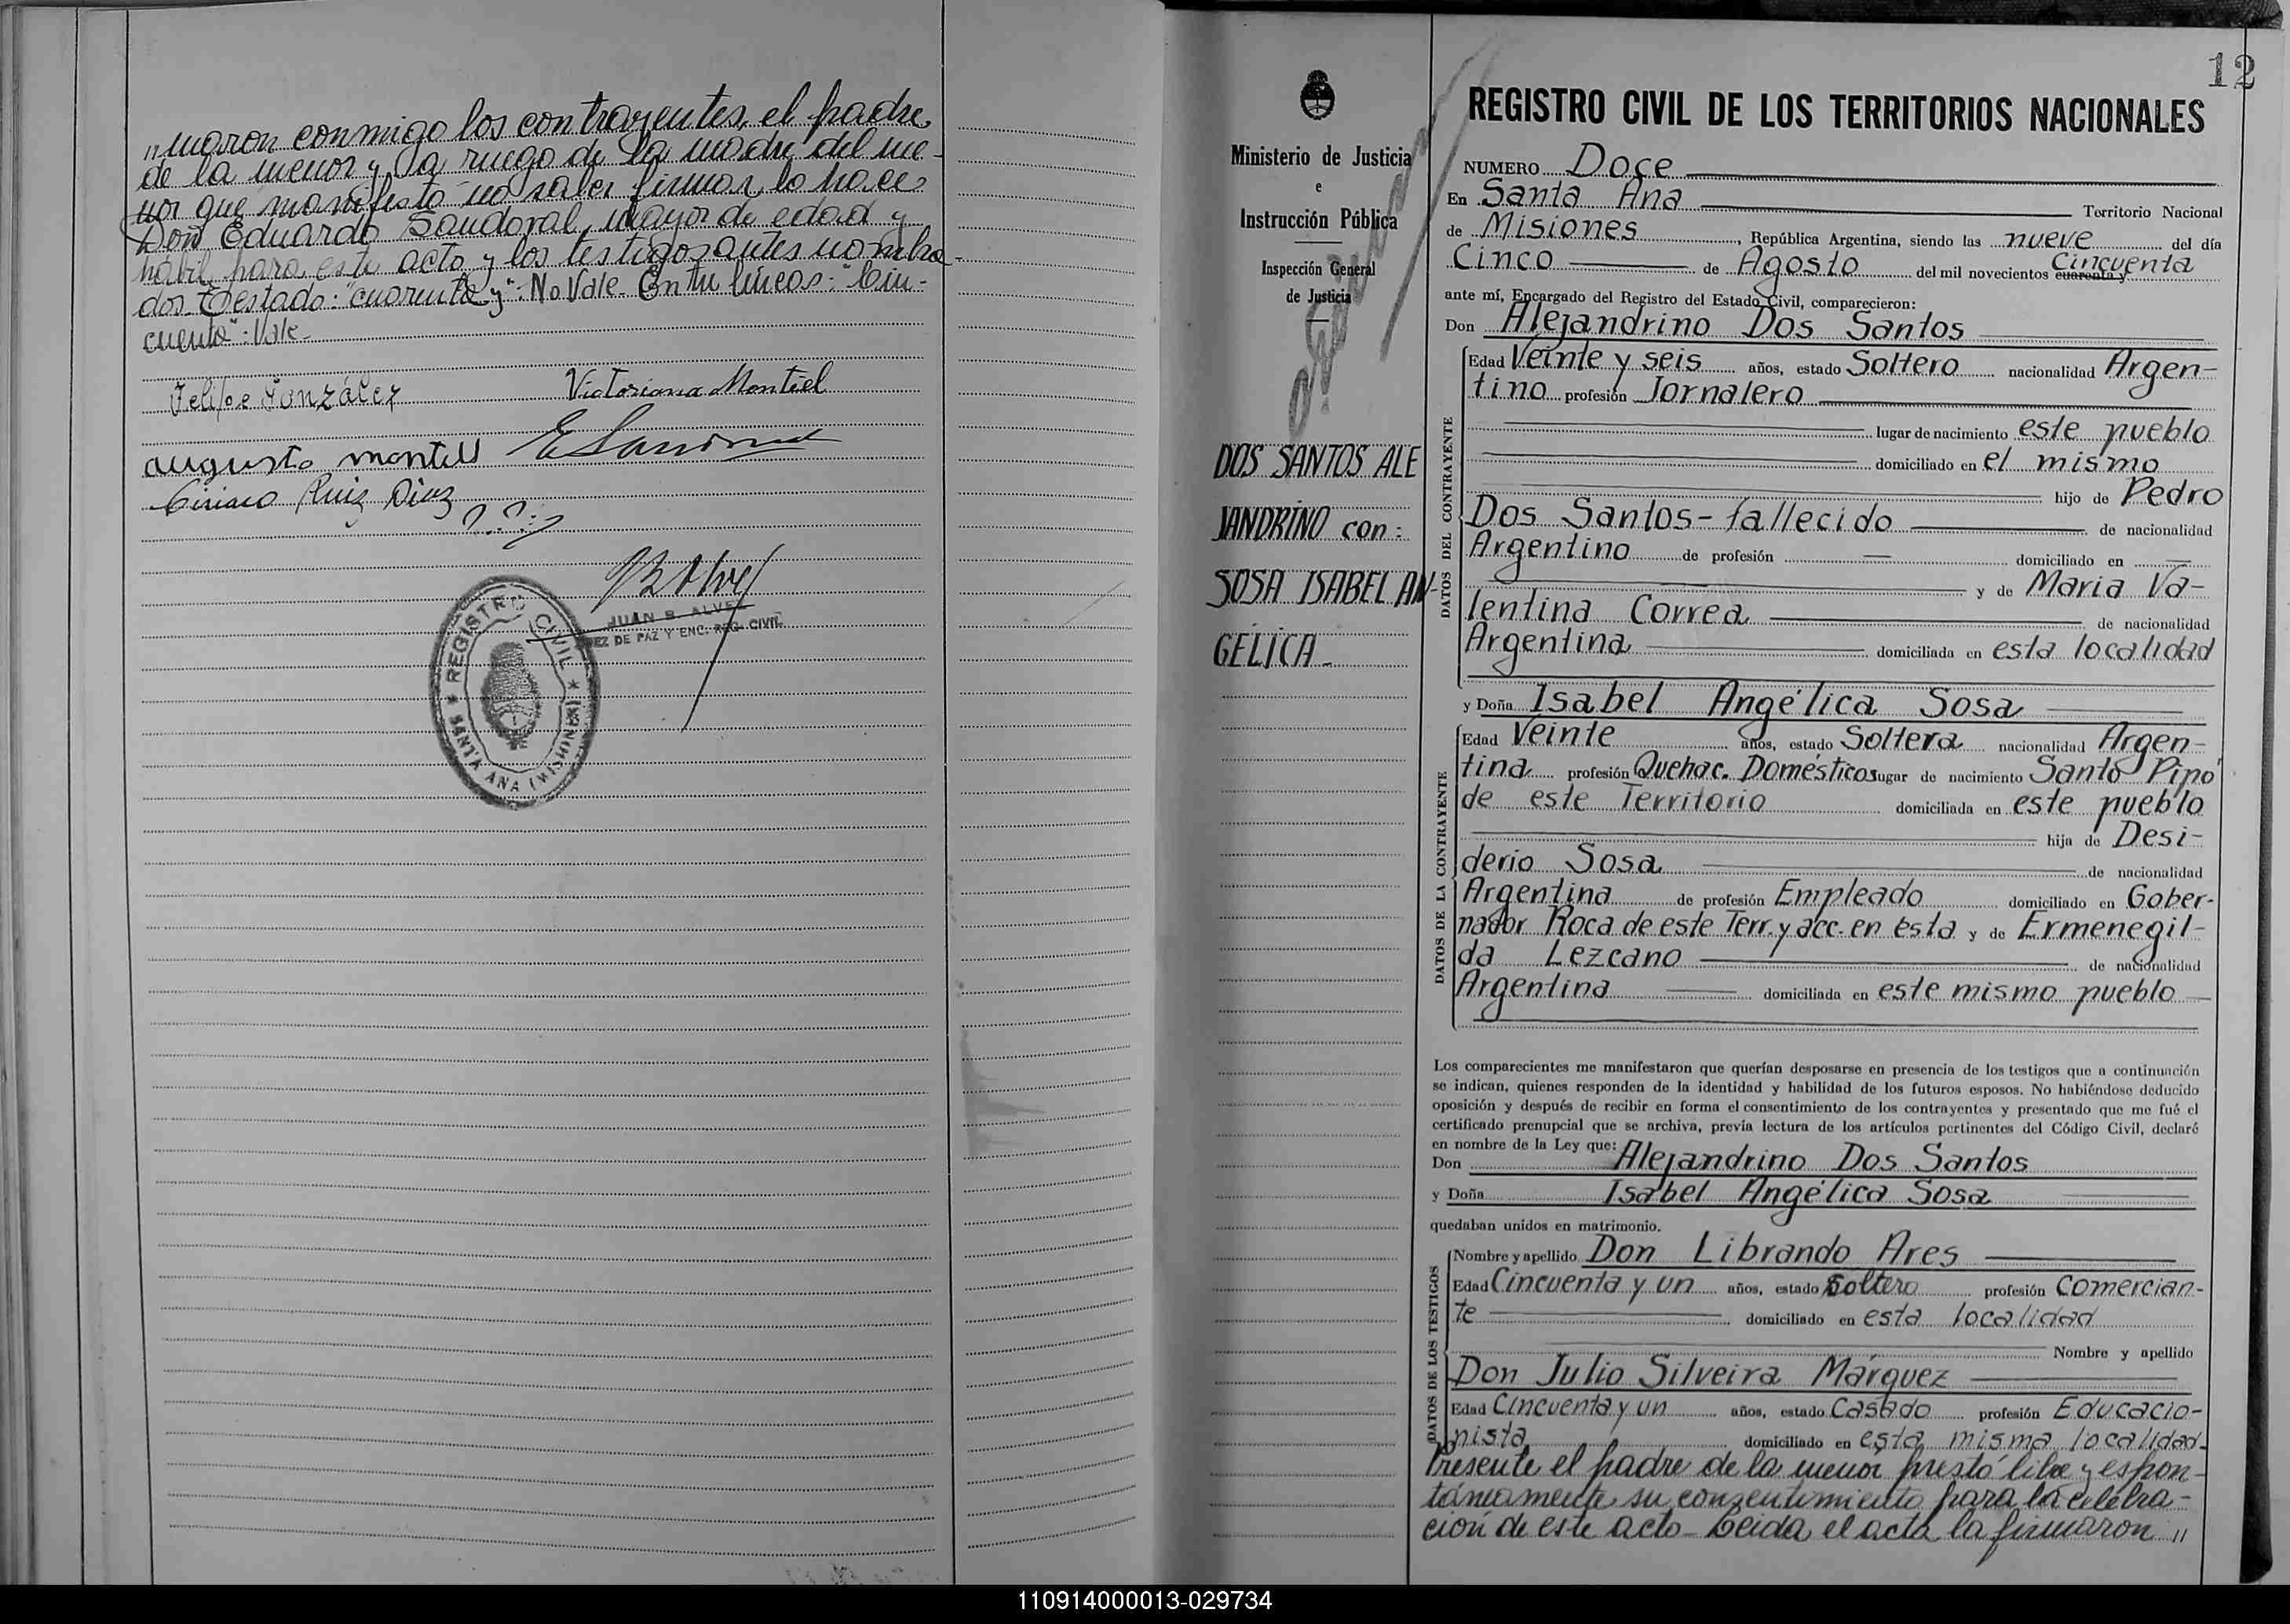 „maron conmigo los contrayentes, el padre
de la menor y a ruego de la madre del me-
nor que manifestó no saber firmar, lo hace
Don Eduardo Sandoval, mayor de edad y
habil para este acto y los testigos antes nombra-
dos. Testado: "cuarenta y": No Vale. Entre líneas: "Cin-
cuenta": Vale.
Felipe González Victoriana Montiel
augusto montiel
Ciriaco Ruiz Diaz
JUAN B. ALVEZ
JUEZ DE PAZ Y ENC. REG. CIVIL
REGISTRO CIVIL
SANTA ANA (MISIONES)
12
Ministerio de Justicia
e
Instrucción Pública
Inspección General
de Justicia
DOS SANTOS ALE
JANDRINO con:
SOSA ISABEL AN-
GÉLICA.
REGISTRO CIVIL DE LOS TERRITORIOS NACIONALES
NUMERO Doce
En Santa Ana Territorio Nacional
de Misiones, República Argentina, siendo las nueve del día
Cinco de Agosto del mil novecientos cuarenta y Cincuenta
ante mí, Encargado del Registro del Estado Civil, comparecieron:
Don Alejandrino Dos Santos
DATOS DEL CONTRAYENTE
Edad Veinte y seis años, estado Soltero nacionalidad Argen-
tino profesión Jornalero
lugar de nacimiento este pueblo
domiciliado en el mismo
hijo de Pedro
Dos Santos - fallecido de nacionalidad
Argentino de profesión — domiciliado en —
y de Maria Va-
lentina Correa de nacionalidad
Argentina domiciliada en esta localidad
y Doña Isabel Angélica Sosa
DATOS DE LA CONTRAYENTE
Edad Veinte años, estado Soltera nacionalidad Argen-
tina profesión Quehac. Domésticos lugar de nacimiento Santo Pipo
de este Territorio domiciliada en este pueblo
hija de Desi-
derio Sosa de nacionalidad
Argentina de profesión Empleado domiciliado en Gober-
nador Roca de este Terr. y acc. en ésta y de Ermenegil-
da Lezcano de nacionalidad
Argentina domiciliada en este mismo pueblo
Los comparecientes me manifestaron que querían desposarse en presencia de los testigos que a continuación
se indican, quienes responden de la identidad y habilidad de los futuros esposos. No habiéndose deducido
oposición y después de recibir en forma el consentimiento de los contrayentes y presentado que me fué el
certificado prenupcial que se archiva, previa lectura de los artículos pertinentes del Código Civil, declaré
en nombre de la Ley que:
Don Alejandrino Dos Santos
y Doña Isabel Angélica Sosa
quedaban unidos en matrimonio.
DATOS DE LOS TESTIGOS
Nombre y apellido Don Librando Ares
Edad Cincuenta y un años, estado Soltero profesión Comercian-
te domiciliado en esta localidad
Nombre y apellido
Don Julio Silveira Márquez
Edad Cincuenta y un años, estado Casado profesión Educacio-
nista domiciliado en esta misma localidad.
Presente el padre de la menor prestó libre y espon-
táneamente su consentimiento para la celebra-
ción de este acto - Leida el acta la firmaron „
110914000013-029734